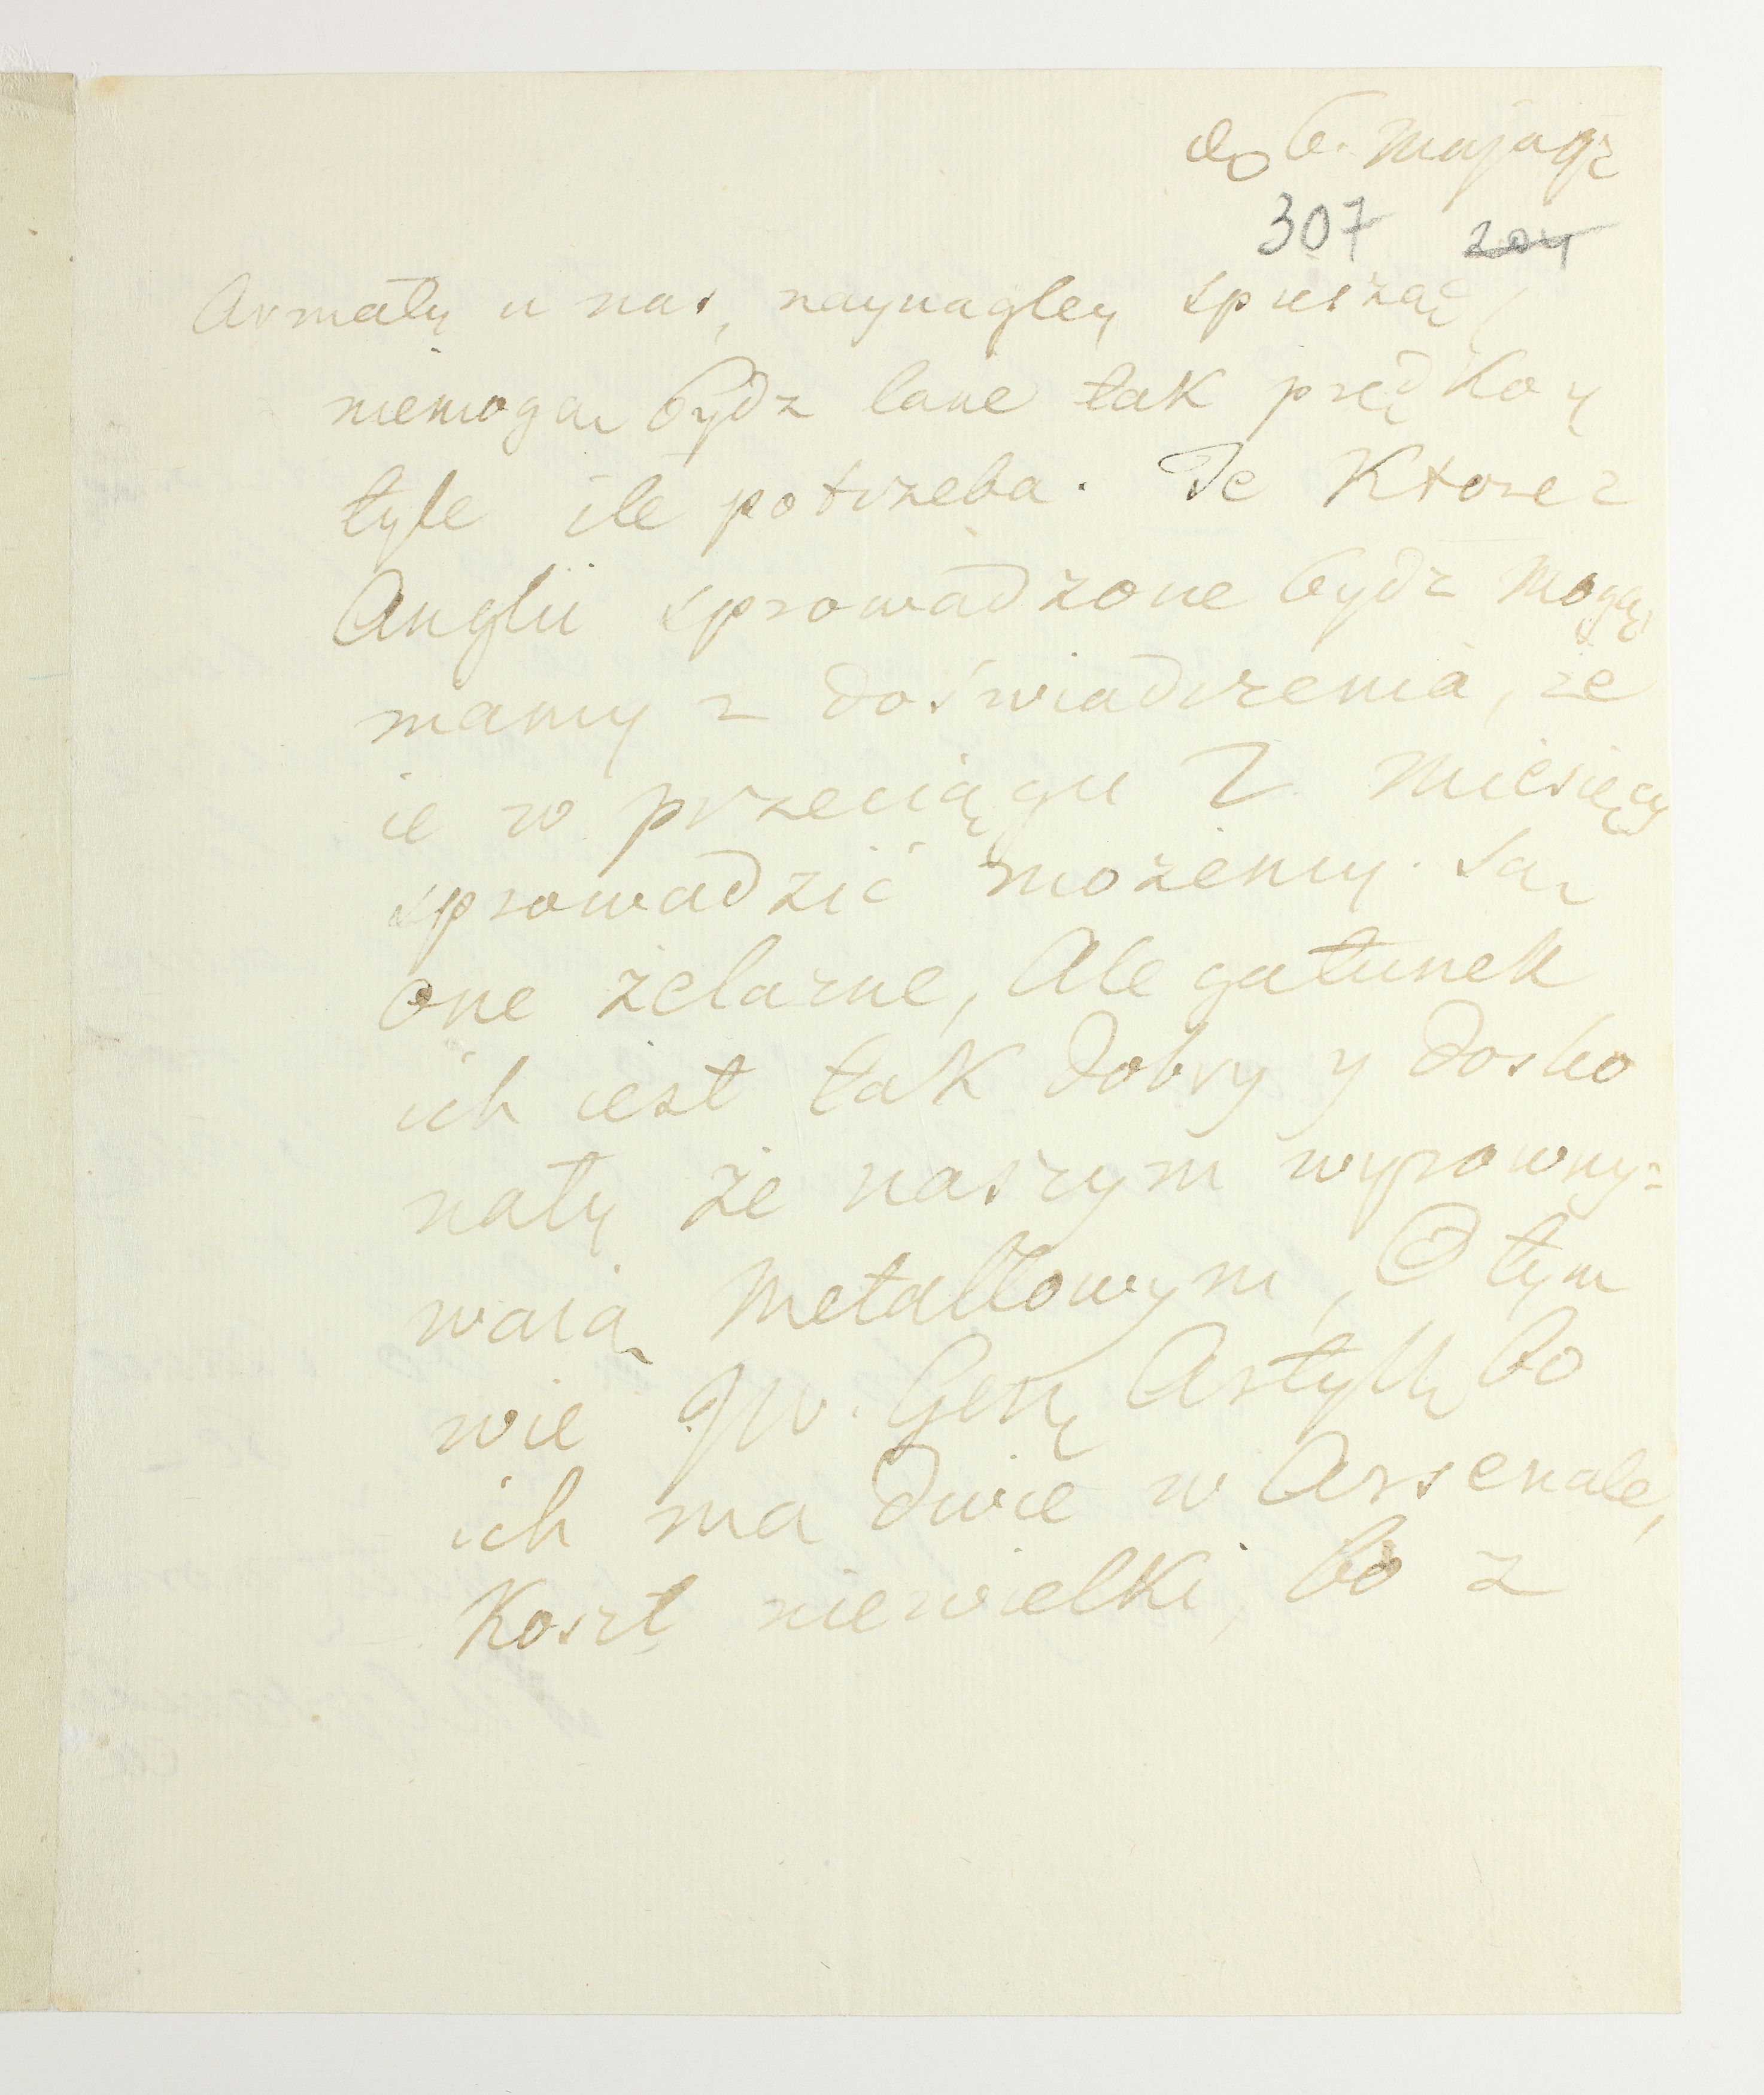 do 6. maja
307 204
Armaty u nas, naynagley spiesząc
niemogą bydz lane tak prędko y
tyle ile potrzeba. Te Ktore z
Anglii sprowadzone bydz mogą,
mamy z doświadczenia, że
ie w przeciągu 2 Miesięcy
sprowadzić możemy. Są
one żelazne, Ale gatunek
ich iest tak dobry y dosko
nały że naszym wyrowny=
waią Metallowym, O tym
wie JW. Gen. Artyll. bo
ich ma dwie w Arsenale,
Koszt niewielki, bo z